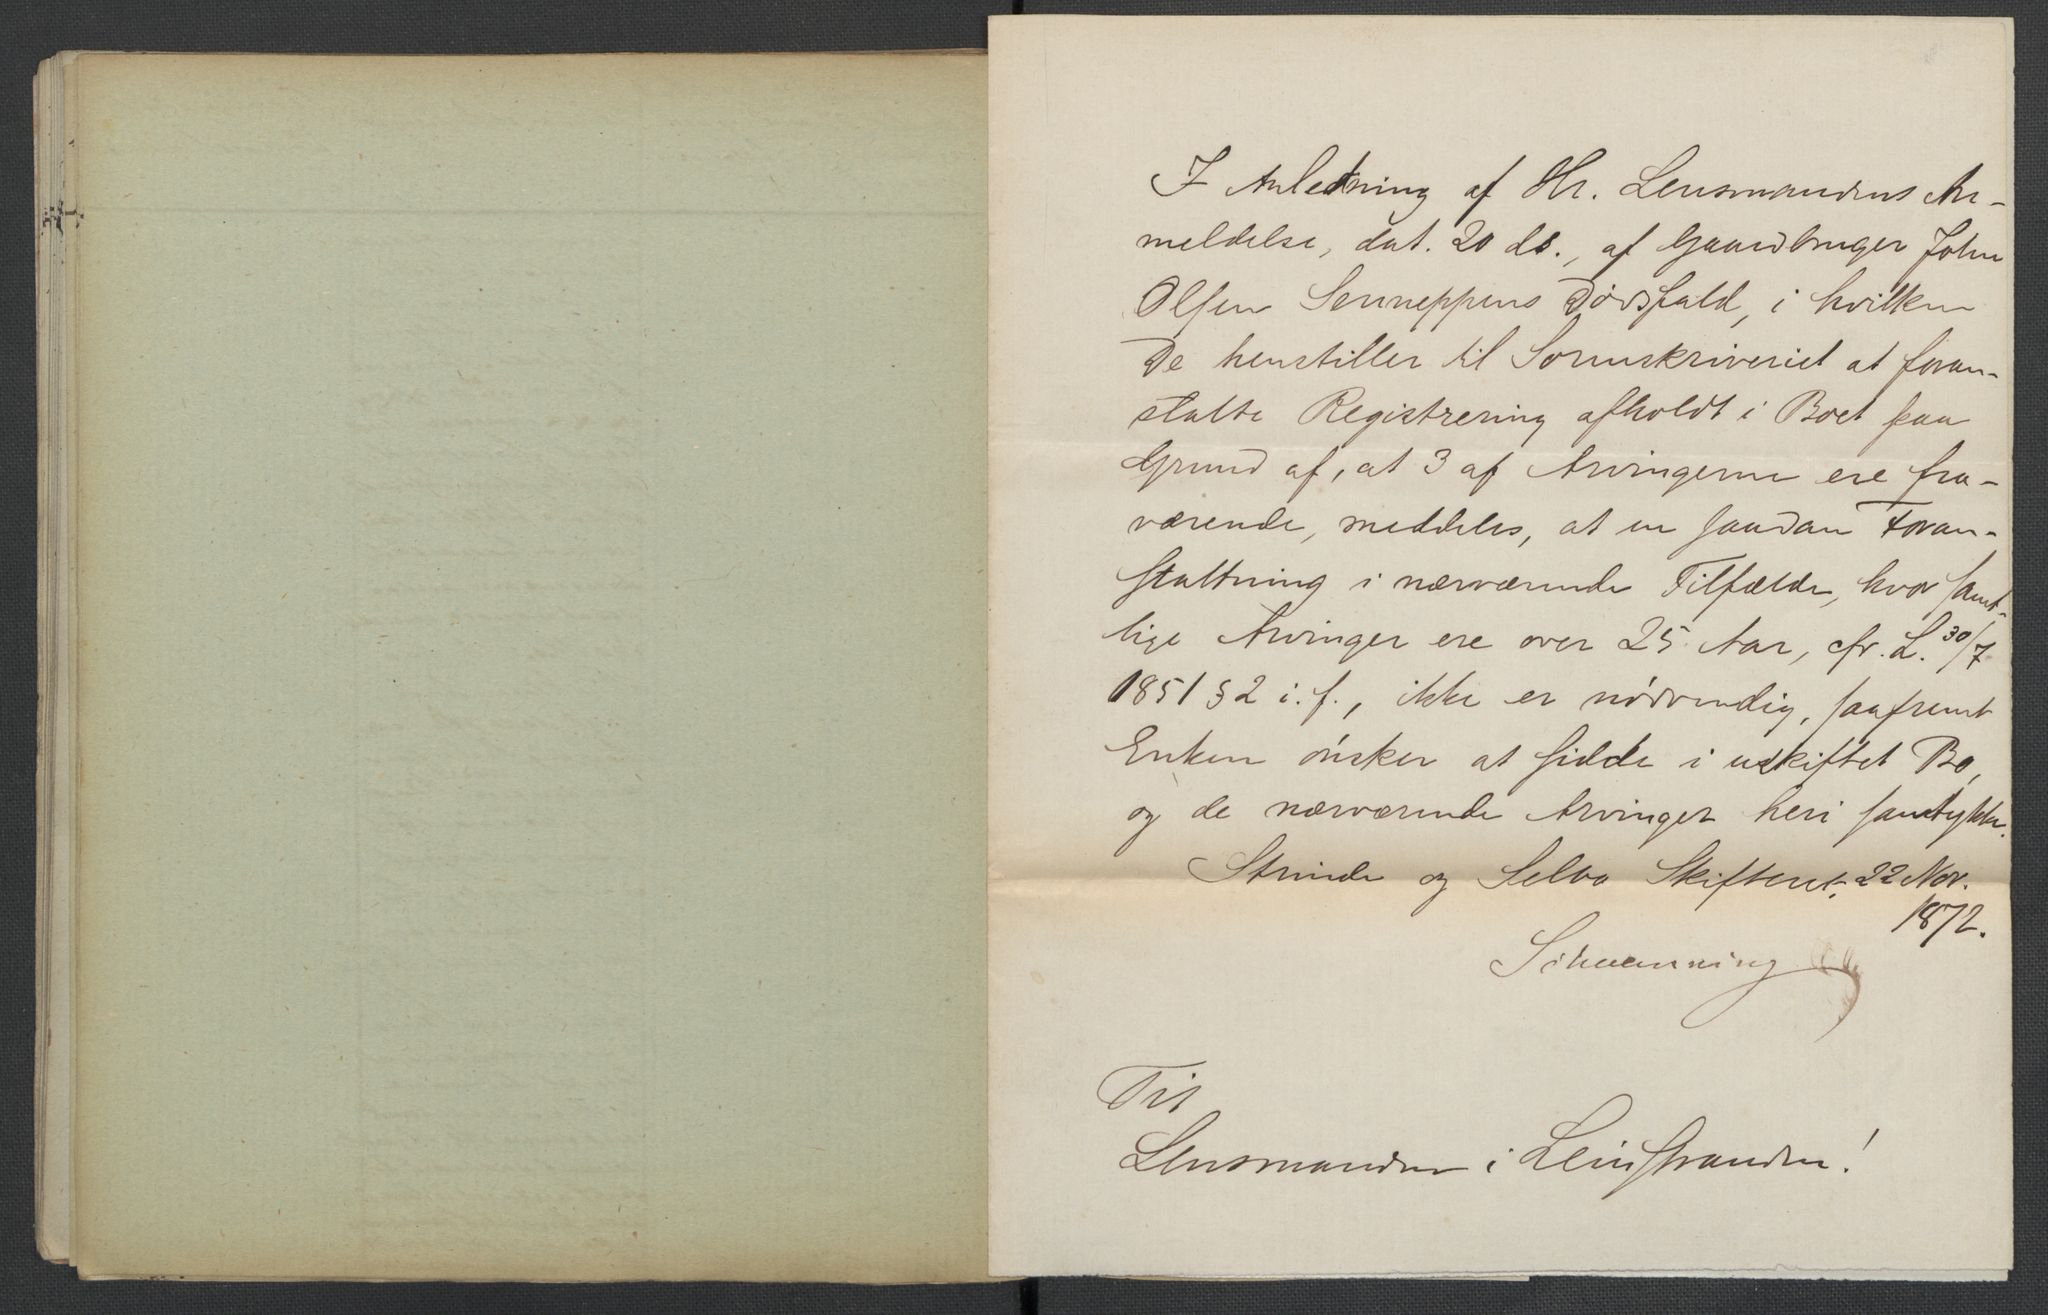 I Anledning af Hr. Lensmandens An-
meldelse, dat. 20 ds., af Gaardbruger John
Olsen Senneppens Dødsfald, i hvilken
De henstiller til Sorenskriveriet at foran-
stalte Registrering afholdt i Boet paa
Grund af, at 3 af Arvingerne ere fra-
værende, meddeles, at en saadan Foran-
staltning i nærværende Tilfælde, hvor samt-
lige Arvinger ere over 25 Aar, cfr. L. 30/7
1851 § 2 i. f., ikke er nødvendig, saafremt
Enken ønsker at sidde i uskiftet Bo,
og de nærværende Arvinger heri samtykke.
Strinde og Selbo Skifteret, 22 Nov.
1872.
Til
Lensmanden i Leinstranden!